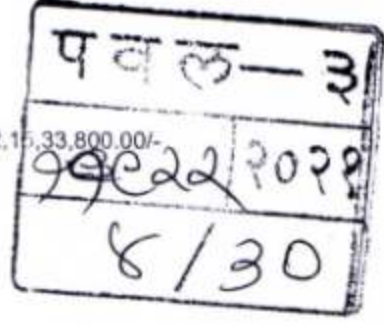 प व ल — ३
2,15,33,800.00/-
११८२२ २०२१
४/३०